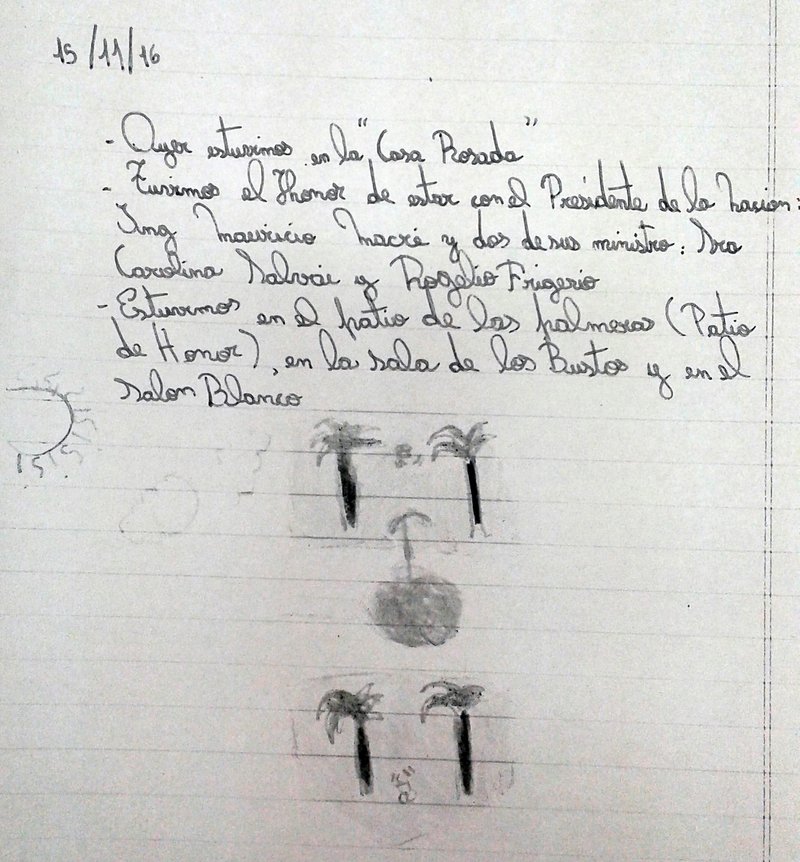 15/11/16
- Ayer estuvimos en la "Casa Rosada"
- Tuvimos el Honor de estar con el Presidente de la nacion:
Ing Mauricio Macri y dos de sus ministro: Sra
Carolina Salvai y Rogelio Frigerio
- Estuvimos en el patio de las palmeras (Patio
de Honor), en la sala de los Bustos y en el
Salon Blanco